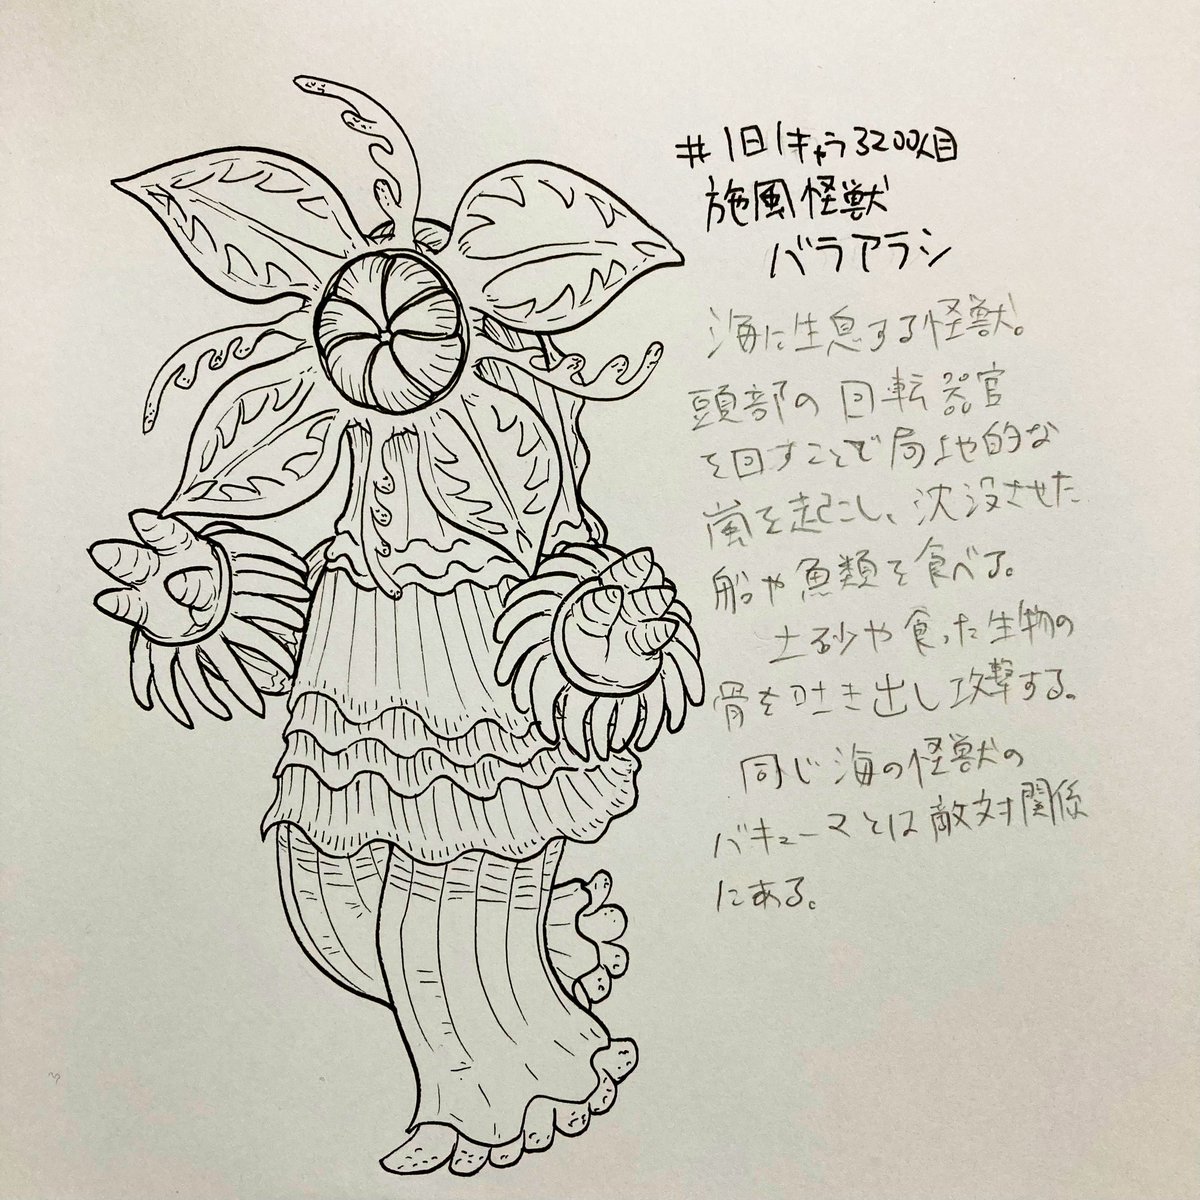 #1日1キャラ3200人目
旋風怪獣
バラアラシ
海に生息する怪獣。
頭部の回転器官
を回すことで局地的な
嵐を起こし、沈没させた
船や魚類を食べる。
土砂や食った生物の
骨を吐き出し攻撃する。
同じ海の怪獣の
バキューマとは敵対関係
にある。